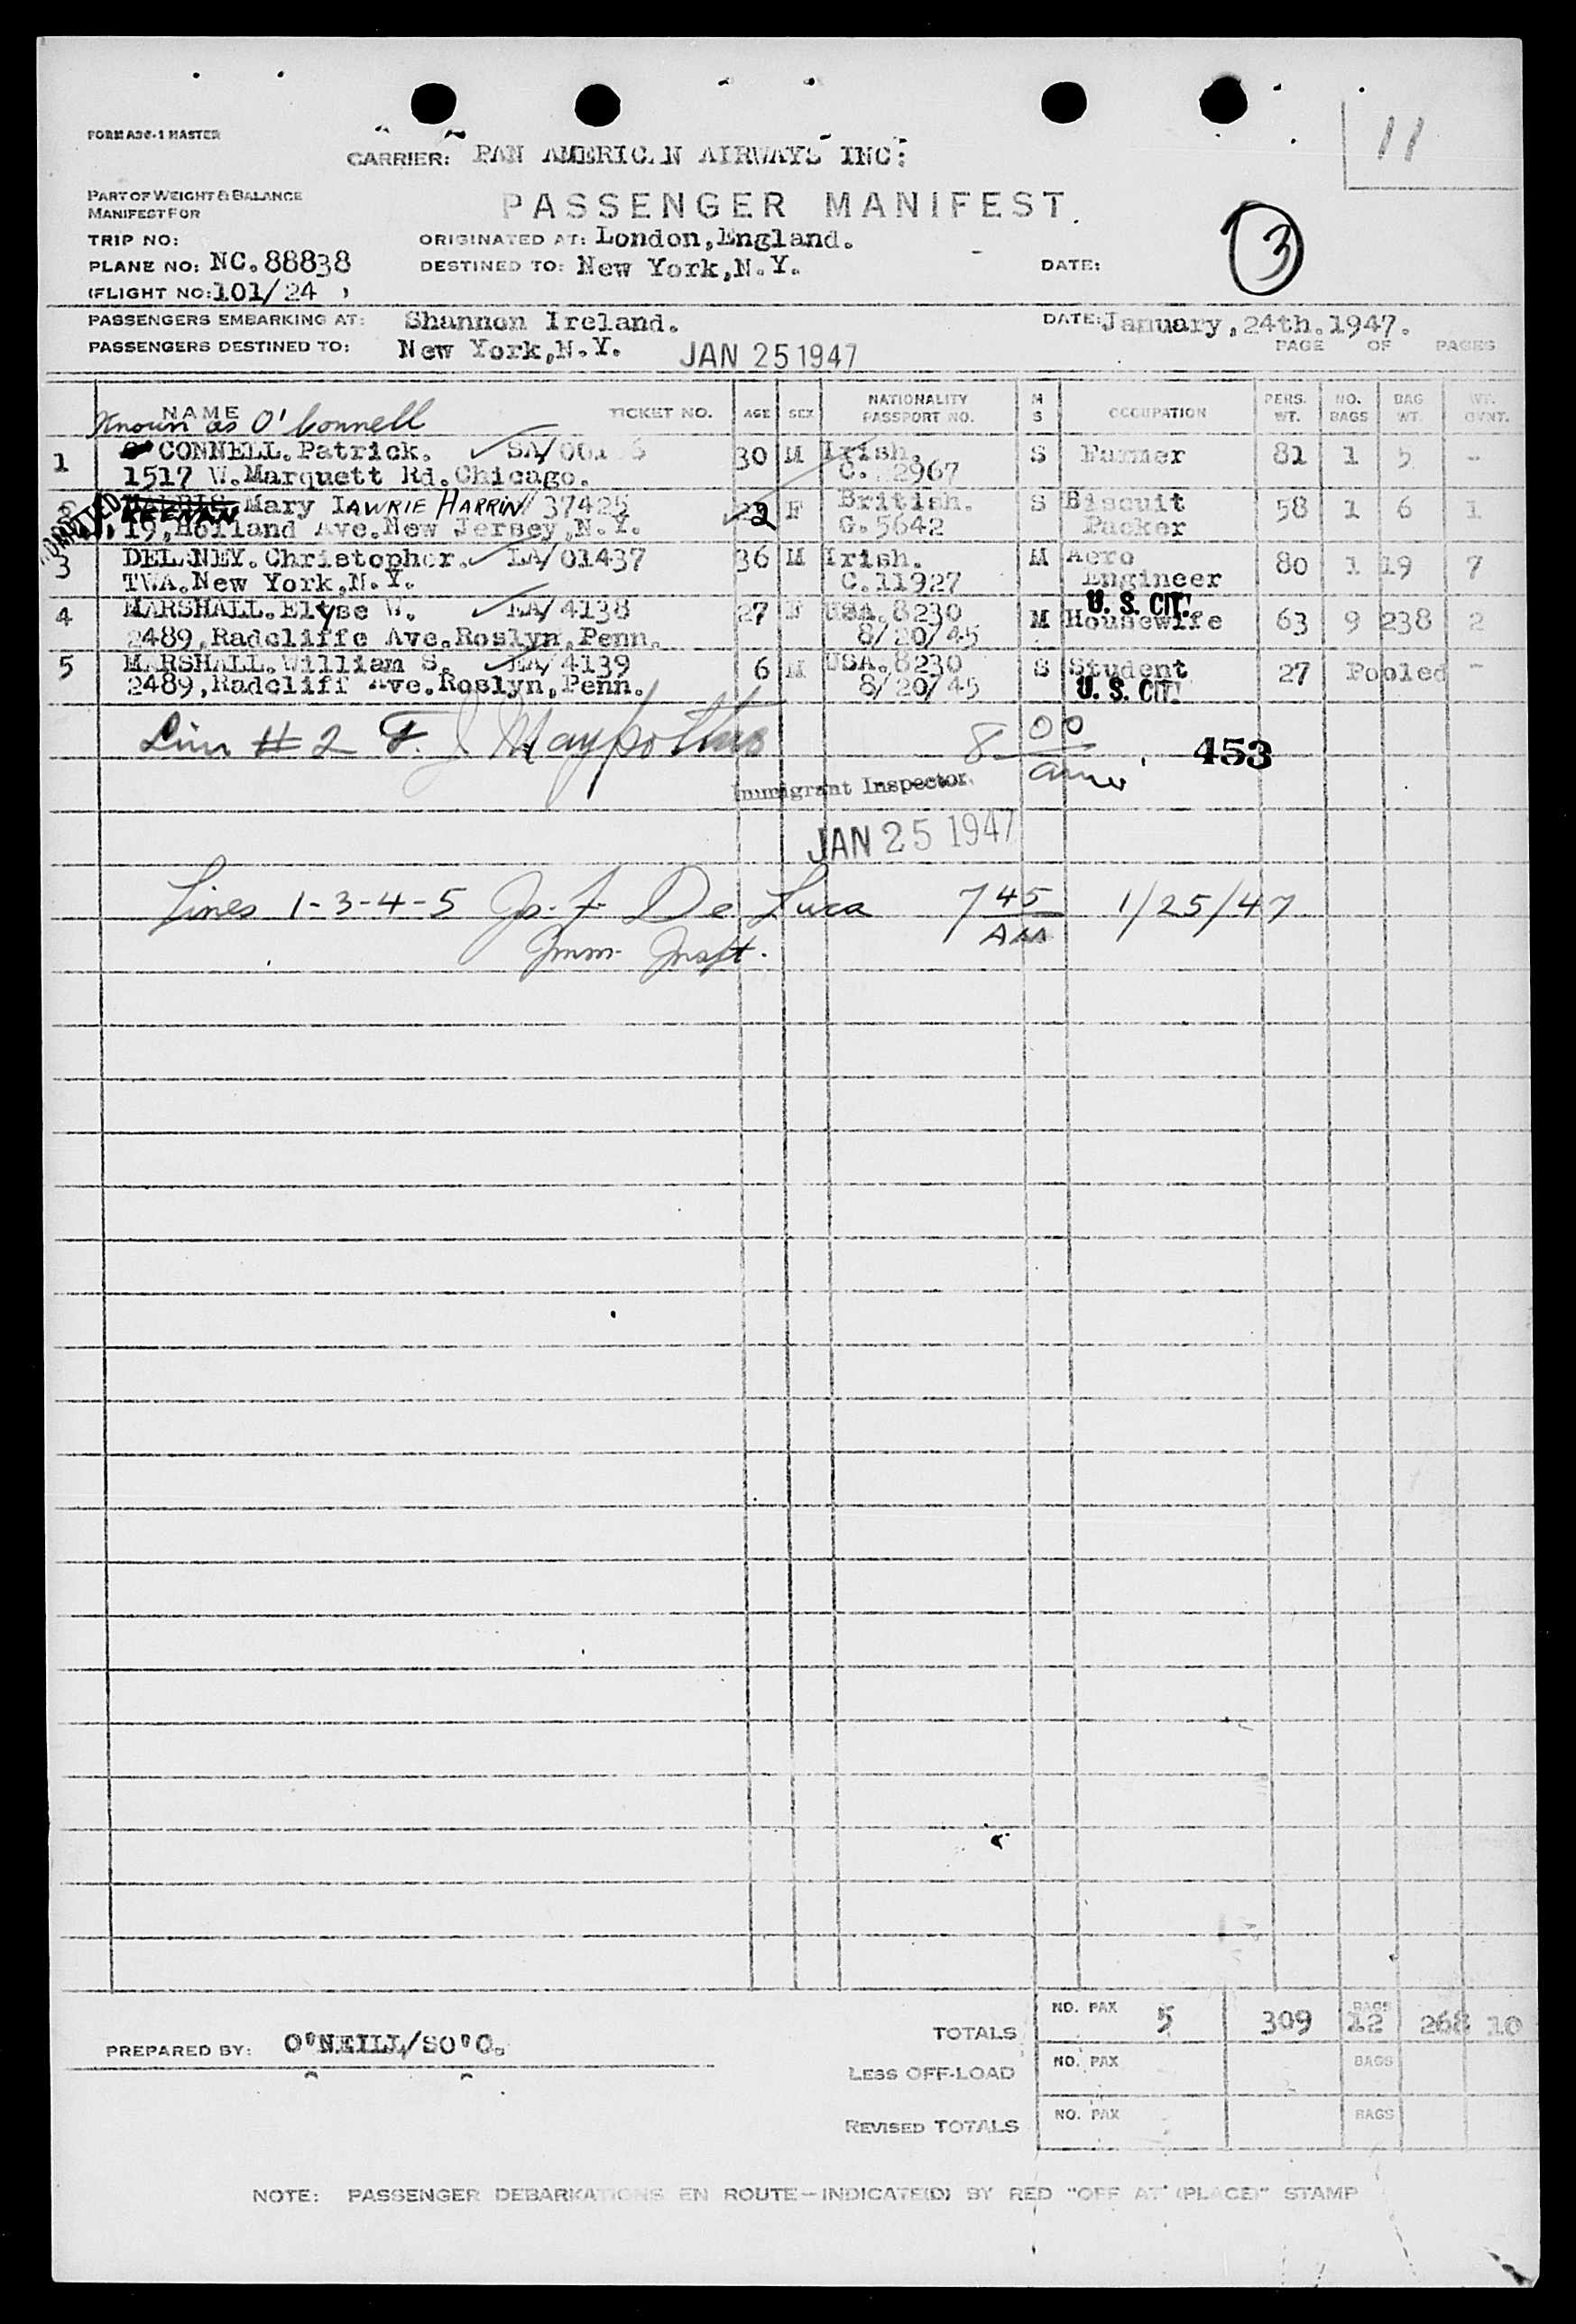 FORM A36-1 MASTER
11
CARRIER: PAN AMERIC.N AIRWAYS INC:
PART OF WEIGHT & BALANCE
MANIFEST FOR
PASSENGER MANIFEST.
TRIP NO:
ORIGINATED AT: London,England.
3
PLANE NO: NC.88838
DESTINED TO: New York,N.Y.
DATE:
(FLIGHT NO:101/24 )
PASSENGERS EMBARKING AT: Shannon Ireland.
DATE: January,24th.1947.
PASSENGERS DESTINED TO: New York,N.Y. JAN 25 1947
PAGE OF PAGES
NAME TICKET NO. AGE SEX NATIONALITY PASSPORT NO. M S OCCUPATION PERS. WT. NO. BAGS BAG WT. WT. OVNT.
Known as O'Connell
1 CONNELL.Patrick. SA/ 30 M Irish. S Farmer 81 1 5 -
1517 W.Marquett Rd.Chicago. C. 2967
Mary LAWRIE HARRIN 37425 2 F British. S Biscuit 58 1 6 1
KEENAN 19,Holland Ave.New Jersey,N.Y. G.5642 Packer
3 DELANEY.Christopher. LA/01437 36 M Irish. M Aero 80 1 19 7
TWA.New York,N.Y. C.11927 Engineer
U. S. CIT.
4 MARSHALL.Elyse W. LA/4138 27 F USA.8230 M Housewife 63 9 238 2
2489,Radcliffe Ave.Roslyn,Penn. 8/20/45
5 MARSHALL.William S. LA/4139 6 M USA.8230 S Student 27 Pooled -
2489,Radcliff Ave.Roslyn,Penn. 8/20/45 U. S. CIT.
Line # 2 F. J. Maypother 8 00 453
Immigrant Inspector
JAN 25 1947
Lines 1-3-4-5 Jo. F. De Luca 7 45 AM 1/25/47
Imm. Inspt.
TOTALS NO. PAX 5 309 BAGS 12 268 10
PREPARED BY: O'NEILL/SO'O.
LESS OFF-LOAD NO. PAX BAGS
REVISED TOTALS NO. PAX BAGS
NOTE: PASSENGER DEBARKATIONS EN ROUTE—INDICATE(D) BY RED "OFF AT (PLACE)" STAMP